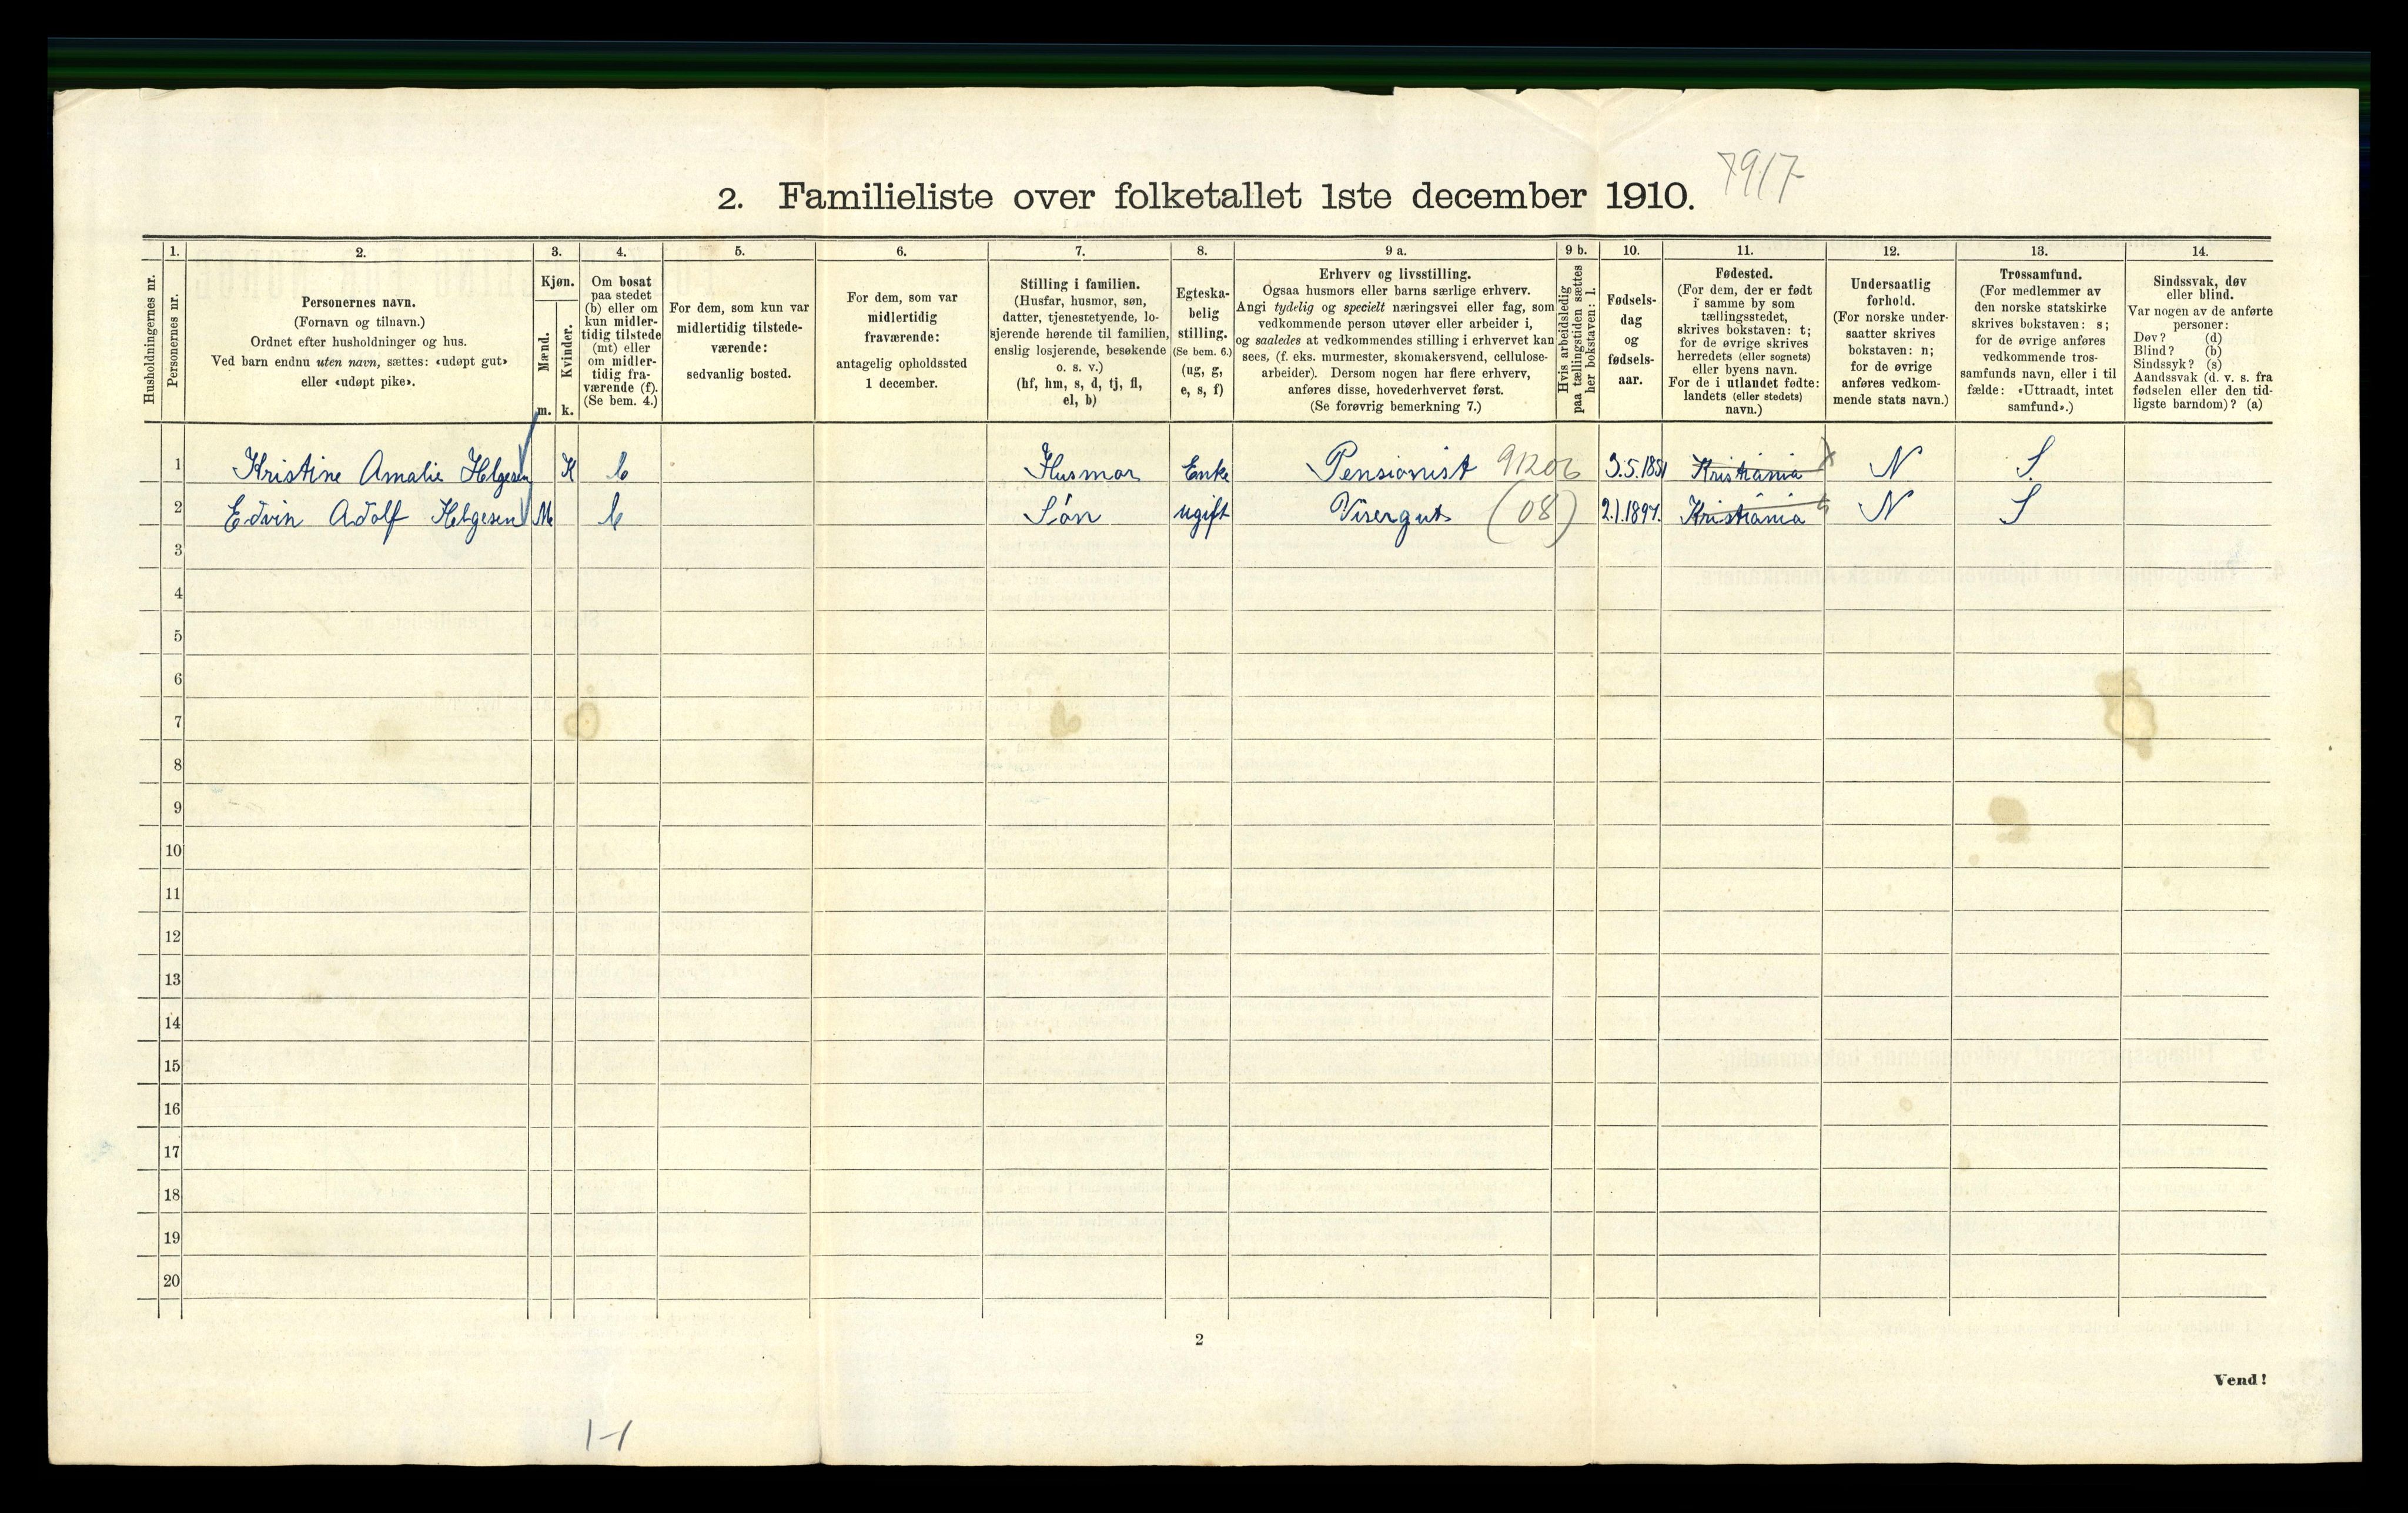 7917
2. Familieliste over folketallet 1ste december 1910.
Husholdningernes nr.
1. Personernes nr.
2. Personernes navn.
(Fornavn og tilnavn.)
Ordnet efter husholdninger og hus.
Ved barn endnu uten navn, sættes: «udøpt gut»
eller «udøpt pike».
3. Kjøn.
Mænd. m.
Kvinder. k.
4. Om bosat
paa stedet
(b) eller om
kun midler-
tidig tilstede
(mt) eller
om midler-
tidig fra-
værende (f).
(Se bem. 4.)
5. For dem, som kun var
midlertidig tilstede-
værende:
sedvanlig bosted.
6. For dem, som var
midlertidig
fraværende:
antagelig opholdssted
1 december.
7. Stilling i familien.
(Husfar, husmor, søn,
datter, tjenestetyende, lo-
sjerende hørende til familien,
enslig losjerende, besøkende
o. s. v.)
(hf, hm, s, d, tj, fl,
el, b)
8. Egteska-
belig
stilling.
(Se bem. 6.)
(ug, g,
e, s, f)
9 a. Erhverv og livsstilling.
Ogsaa husmors eller barns særlige erhverv.
Angi tydelig og specielt næringsvei eller fag, som
vedkommende person utøver eller arbeider i,
og saaledes at vedkommendes stilling i erhvervet kan
sees, (f. eks. murmester, skomakersvend, cellulose-
arbeider). Dersom nogen har flere erhverv,
anføres disse, hovederhvervet først.
(Se forøvrig bemerkning 7.)
9 b. Hvis arbeidsledig
paa tællingstiden sættes
her bokstaven: l.
10. Fødsels-
dag
og
fødsels-
aar.
11. Fødested.
(For dem, der er født
i samme by som
tællingsstedet,
skrives bokstaven: t;
for de øvrige skrives
herredets (eller sognets)
eller byens navn.
For de i utlandet fødte:
landets (eller stedets)
navn.)
12. Undersaatlig
forhold.
(For norske under-
saatter skrives
bokstaven: n;
for de øvrige
anføres vedkom-
mende stats navn.)
13. Trossamfund.
(For medlemmer av
den norske statskirke
skrives bokstaven: s;
for de øvrige anføres
vedkommende tros-
samfunds navn, eller i til
fælde: «Uttraadt, intet
samfund».)
14. Sindssvak, døv
eller blind.
Var nogen av de anførte
personer:
Døv? (d)
Blind? (b)
Sindssyk? (s)
Aandssvak (d. v. s. fra
fødselen eller den tid-
ligste barndom)? (a)
1 Kristine Amalie Helgesen K b Husmor Enke Pensionist 91206 3.5.1851 Kristiania N S
2 Edvin Adolf Helgesen M b Søn ugift Visergut (08) 2.1.1897. Kristiania N S
3
4
5
6
7
8
9
10
11
12
13
14
15
16
17
18
19
20
2
Vend!
1-1